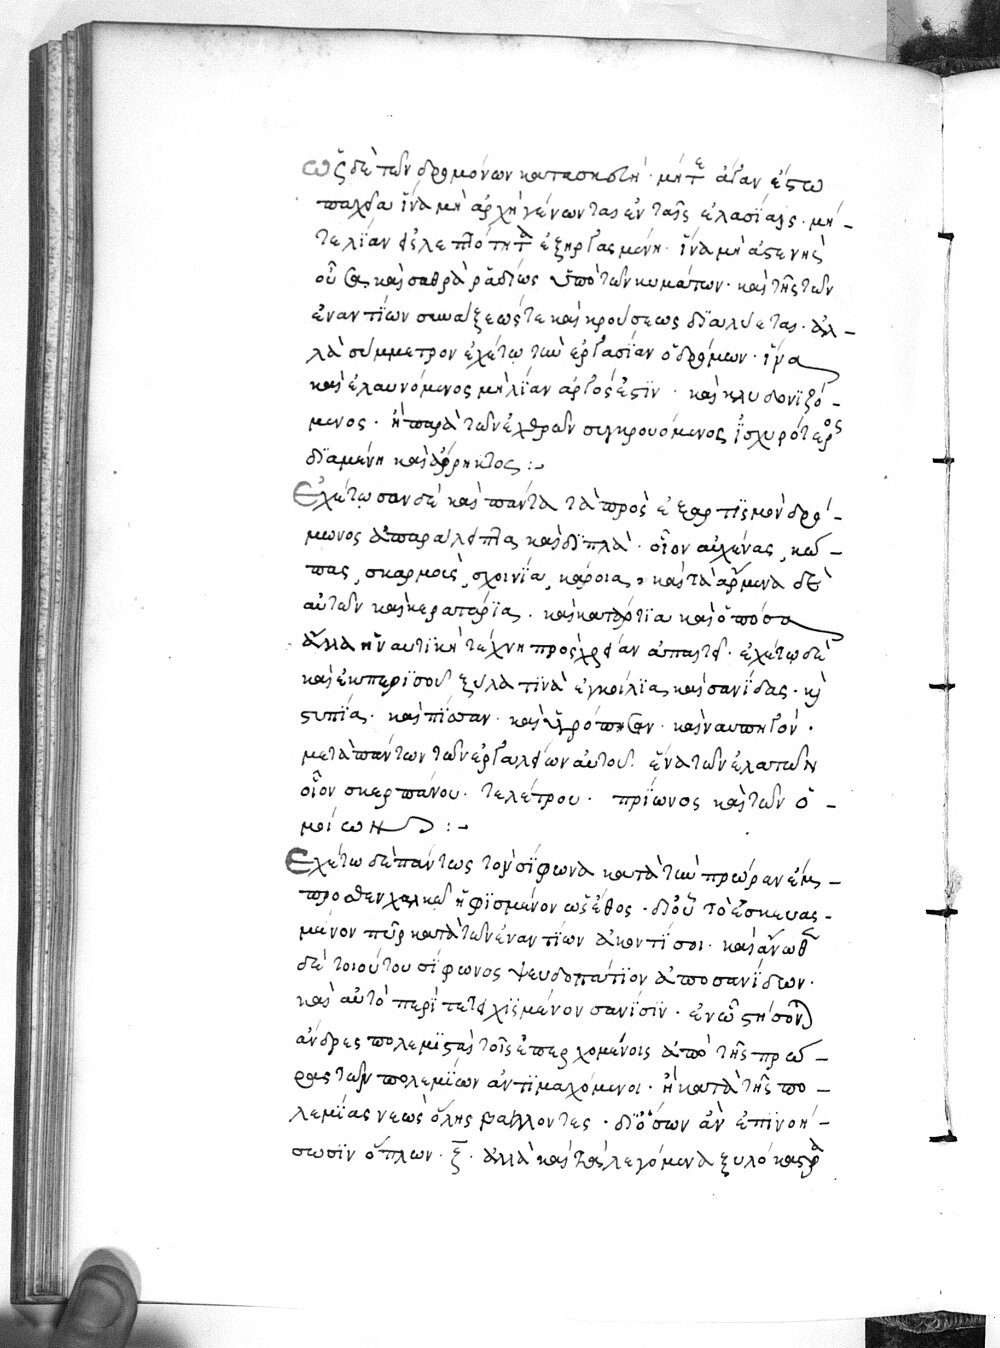 ὡς δὲ τῶν δρομώνων κατασκευὴ· μήτε ἄγαν ἔστω
παχεῖα ἵνα μὴ ἀργὴ γένωνται ἐν ταῖς ἐλασίαις· μή-
τε λίαν εἰς λεπτότητα ἐξηργασμένη· ἵνα μὴ ἀσθενὴς
οὖσα καὶ σαθρὰ ῥαδίως ὑπὸ τῶν κυμάτων· καὶ τῆς τῶν
ἐναντίων συναξεώς τε καὶ κρούσεως διαλύεται· ἀλ-
λὰ σύμμετρον ἐχέτω τὴν ἐργασίαν ὁ δρόμων· ἵνα
καὶ ἐλαυνόμενος μὴ λίαν ἀργός ἐστὶν· καὶ κλυδονιζό-
μενος· ἢ παρὰ τῶν ἐχθρῶν συγκρουόμενος ἰσχυρότερος
διαμένη καὶ ἄρρηκτος :-
Ἐχέτωσαν δὲ καὶ πάντα τὰ πρὸς ἐξαρτισμὸν δρό-
μωνος ἀπαραλείπτα καὶ διπλὰ· οἷον αὐχένας, κώ-
πας, σκαρμοὺς, σχοινία, κάροια, καὶ τὰ ἄρμενα δὲ
αὐτῶν καὶ κεραταρίας· καὶ κατάρτια καὶ ὁπόσα
ἄλλα ἡ ναυτικὴ τέχνη πρὸς χρείαν ἀπαιτεῖ· ἐχέτω δὲ
καὶ ἐκ περισοῦ ξύλα τινὰ ἐγκοίλια, καὶ σανίδας· καὶ
στυπία· καὶ πίσσαν· καὶ ὑγρόπισσαν· καὶ ναυπηγὸν·
μετὰ πάντων τῶν ἐργαλείων αὐτοῦ· ἕνα τῶν ἐλατῶν
οἷον σκερπάνου· τελέτρου· πρίωνος καὶ τῶν ὁ-
μοίων :-
Ἐχέτω δὲ πάντως τὸν σίφωνα κατὰ τὴν πρώραν ἔμ-
προσθεν χαλκῶ ἠφισμένον ὡς ἔθος· δι' οὗ τὸ ἐσκευασ-
μένον πῦρ κατὰ τῶν ἐναντίων ἀκοντίσοι· καὶ ἄνωθεν
δὲ τοιούτου σίφωνος ψευδοπάτιον ἀπὸ σανίδων·
καὶ αὐτὸ περιτετειχισμένον σανίσιν· ἐν ὧ στήσονται
ἄνδρες πολεμισταὶ τοῖς ἐπερχομένοις ἀπὸ τῆς πρώ-
ρας τῶν πολεμίων ἀντιμαχόμενοι· ἢ κατὰ τῆς πο-
λεμίας νεὼς ὅλης βάλλοντες· δι' ὅσων ἂν ἐπινοή-
σωσιν ὅπλων· ξ· ἀλλὰ καὶ τὰ λεγόμενα ξυλόκαστρα